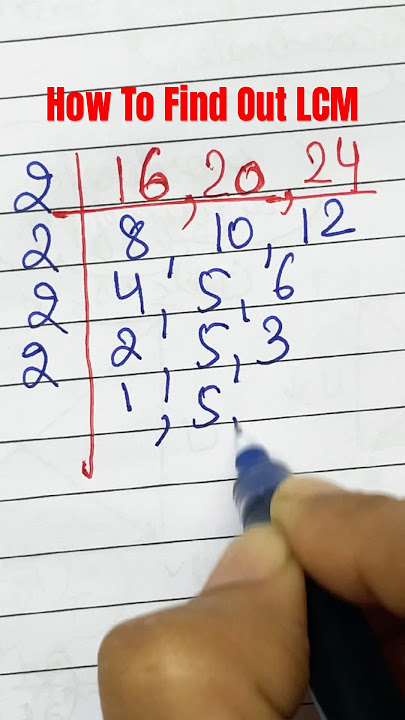 How To Find Out LCM
2 16, 20, 24
2 8, 10, 12
2 4, 5, 6
2 2, 5, 3
1, 5,